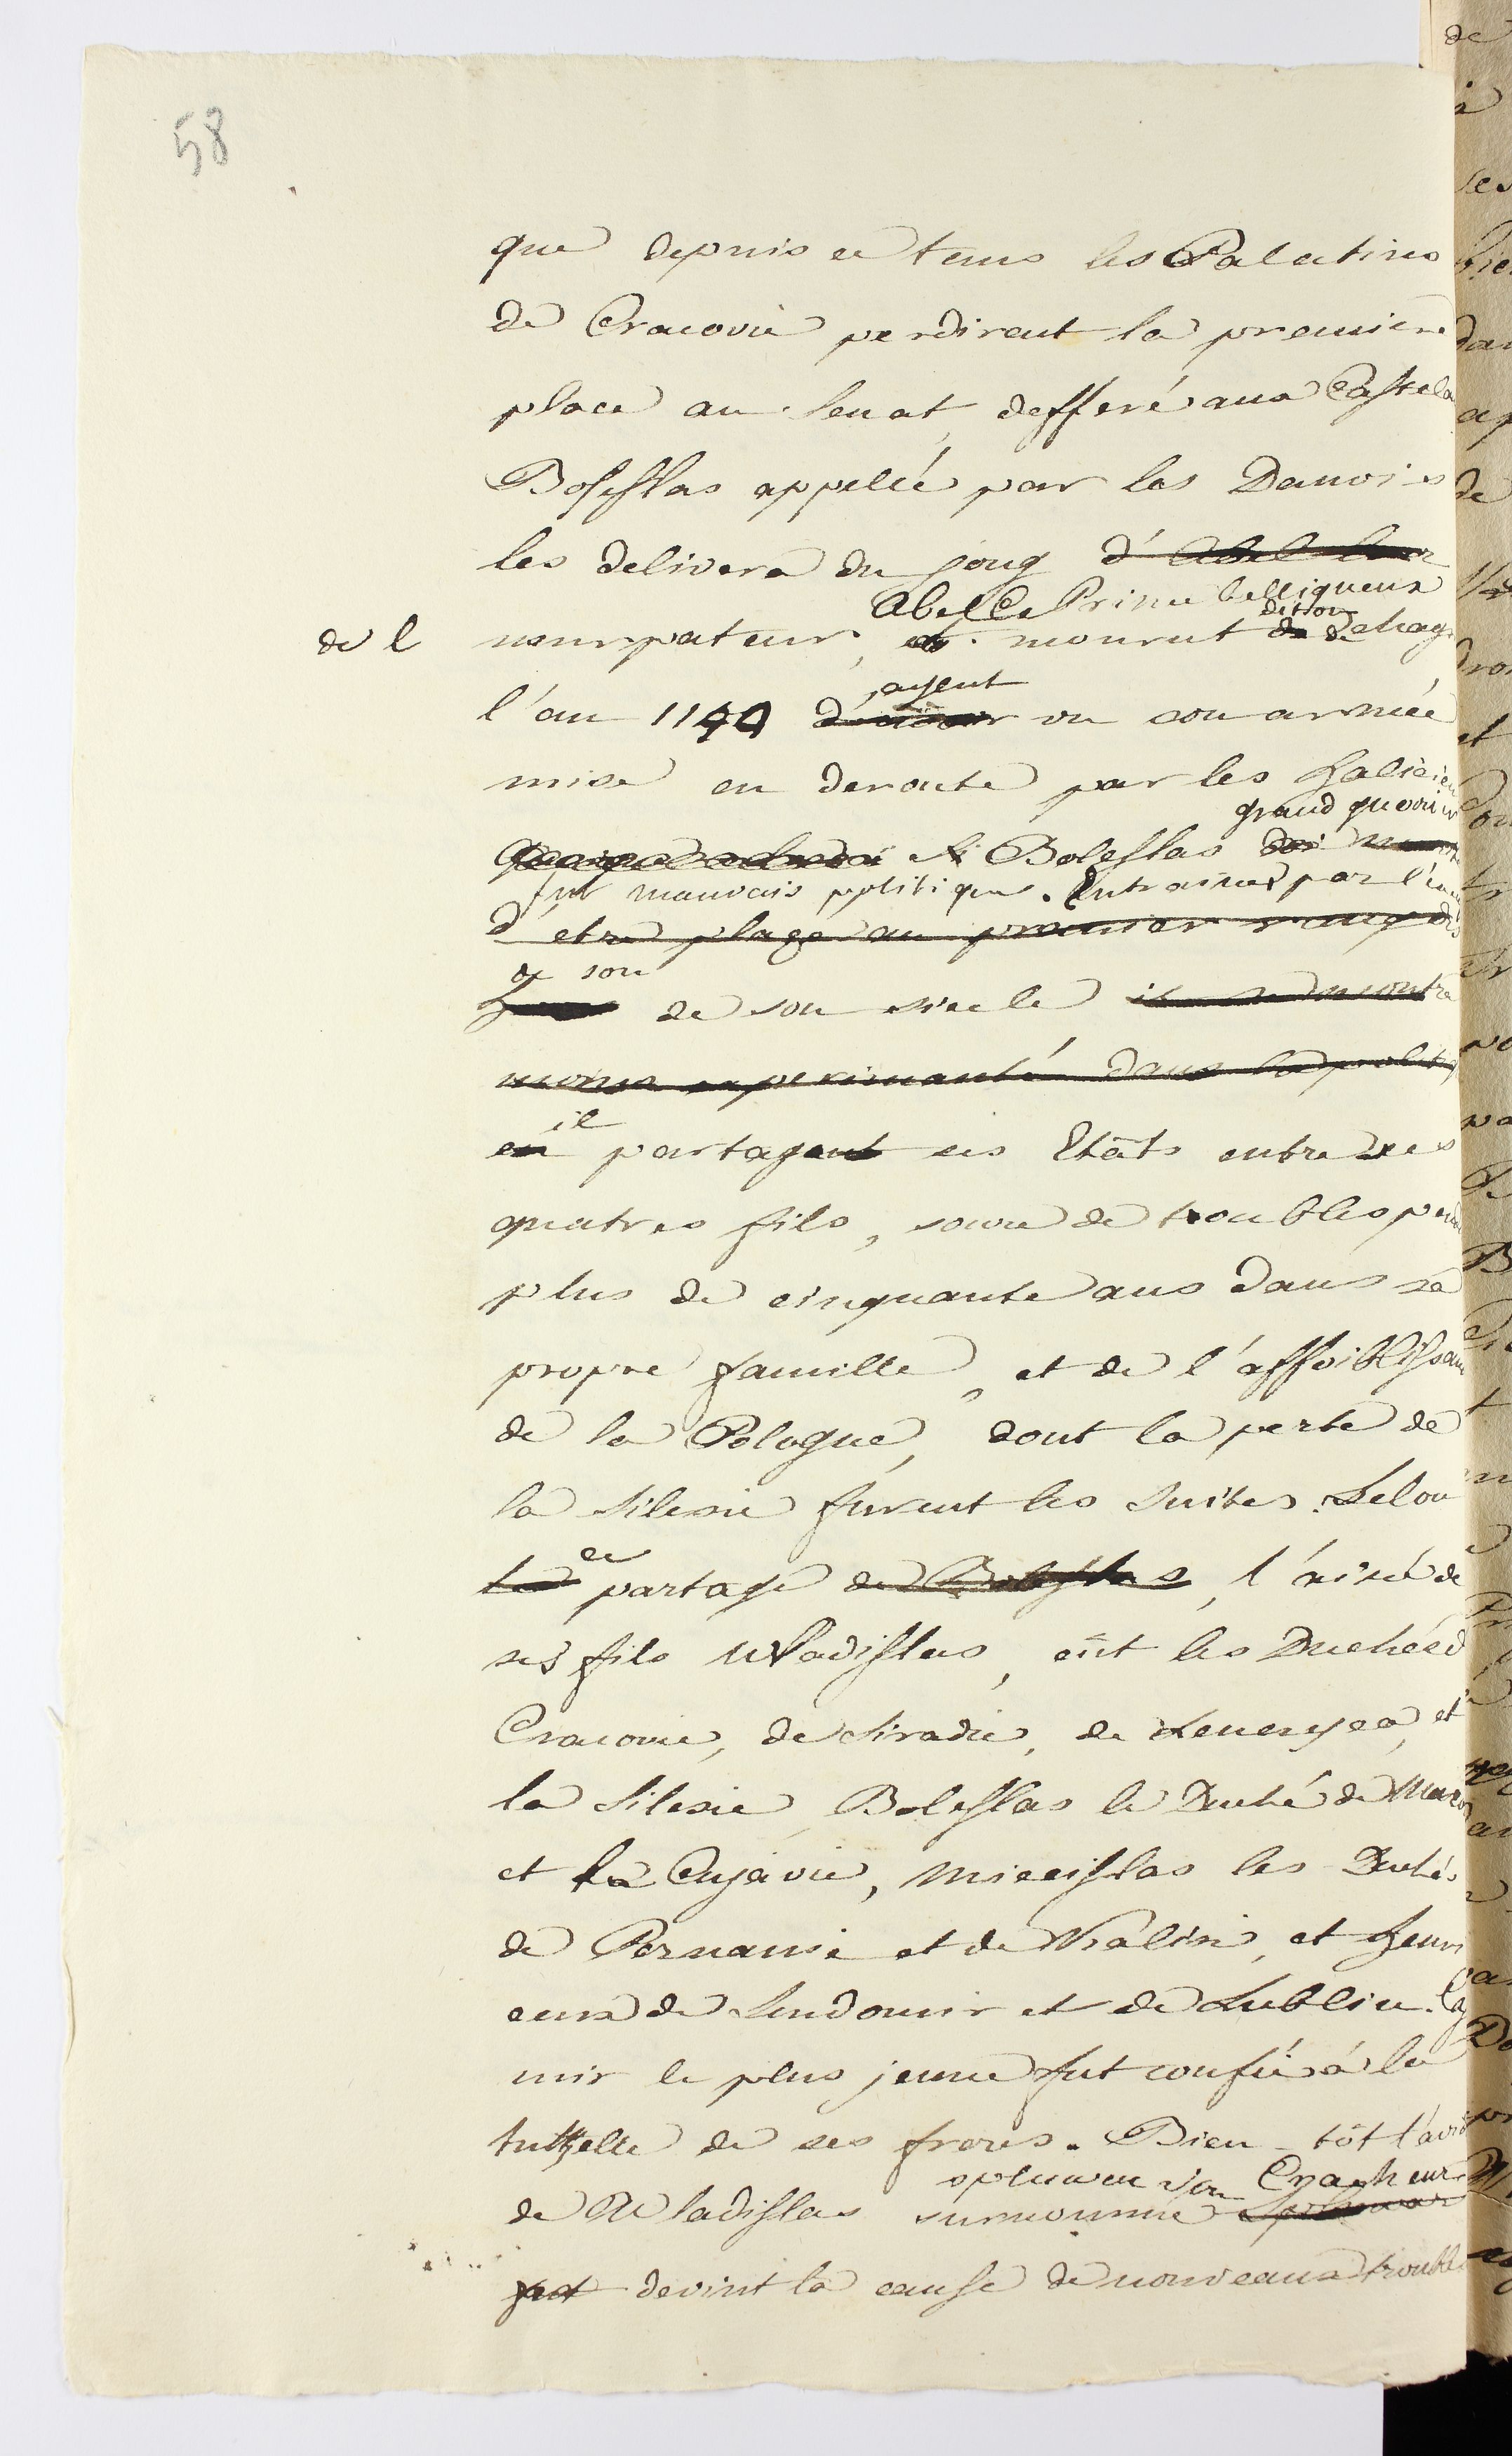 58
que depuis ce tems les Palatins
de Cracovie perdirent la premiere
place au Senat, defferé aux Castela
Boleslas appellé par les Danois
les delivera du joug d'Abel leur
Abel Ce Prince belliqueux
dit on
de l usurpateur, et mourut de de chag
ayent
l'an 1144 vu son armée
mise en deroute par les Halicien
grand guerrier
Si Boleslas
fut mauvais politique. Entrainé par l'
d'etre placé au premier rang
de son
de son siecle il se montra
moins experimanté dans la polit
il
en partageant ses Etâts entre ses
quatres fils, source de troubles pend
plus de cinquante ans dans sa
propre famille, et de l'affoiblissem
de la Pologne, dont la perte de
la Silesie furent les suites. Selon
ce
le partage de Boleslas, l'ainé de
ses fils Wladislas, eût les Duchés d
Cracovie, de Siradie, de Lenczyca, et
la Silesie, Boleslas le Duché de Mazo
et la Cujavie, Miecislas les Duchés
de Posnanie et de Kalisz, et Henri
ceux de Sendomir et de Lublin. Cas
mir le plus jeune fut confié à la
tuttelle de ses freres. Bien-tôt l'avi
Cracheur
de Wladislas surnommé
fut devint la cause de nouveaux trouble